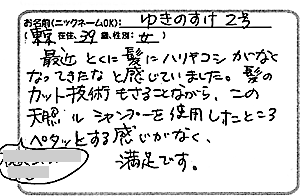 お名前(ニックネームOK): ゆきのすけ2号
(東京 在住、39歳、性別: 女 )
最近とくに髪にハリやコシがなく
なってきたなと感じていました。髪の
カット技術もさることながら、この
天照ルシャンプーを使用したところ
ペタッとする感じがなく、
満足です。